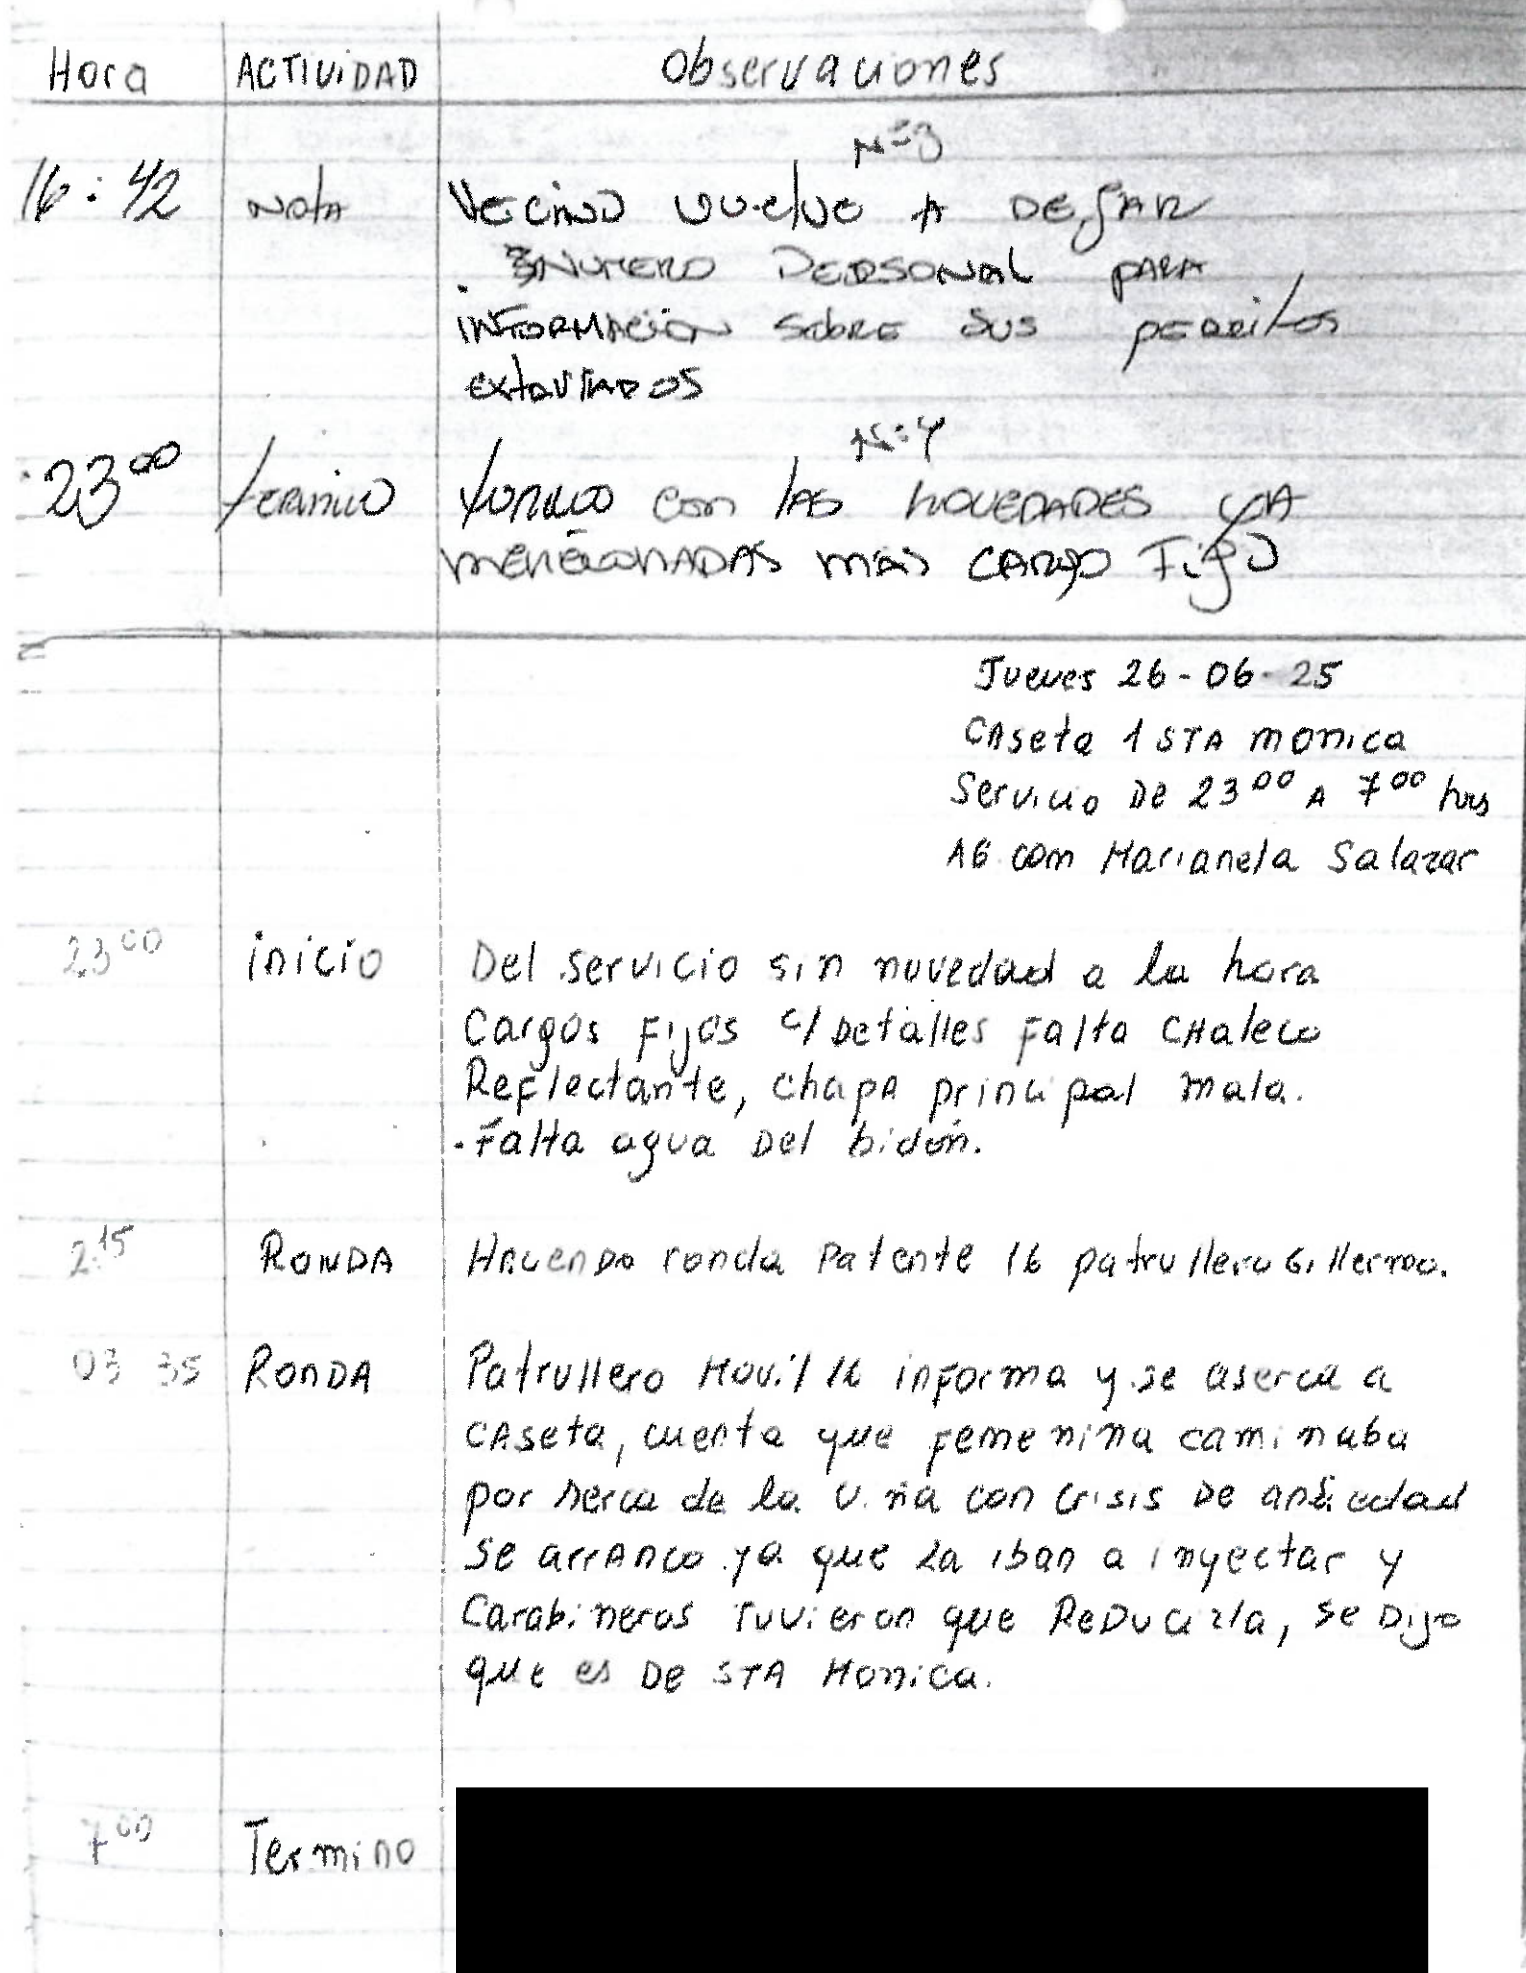 Hora ACTIVIDAD Observaciones
N=3
16:42 Nota Vecino vuelve A DEJAR
NUMERO PERSONAL PARA
INFORMACION SOBRE SUS PERRITOS
extaviados
N=4
23 00 termino turno con las NOVEDADES YA
mencionadas mas CARGO Fijo
Jueves 26-06-25
Caseta 1 STA monica
Servicio De 23 00 A 7 00 hrs
AG com Marianela Salazar
23 00 inicio Del servicio sin novedad a la hora
Cargos Fijos c/Detalles Falta CHaleco
Reflectante, chapa principal mala.
- Falta agua Del bidón.
2:15 RONDA Haciendo ronda Patente 16 patrullero Gillermo.
03 35 RONDA Patrullero Movil 16 informa y se aserca a
caseta, cuenta que femenina caminaba
por serca de la Viña con crisis De ansiedad
se arranco ya que la iban a inyectar y
Carabineros Tuvieron que Reducirla, se Dijo
que es De STA Monica.
7 00 Termino